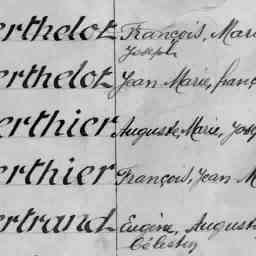 erthelot François, Mari
Joseph
erthelot Jean Marie, franç
erthier Auguste, Marie, Jose
erthier François, Jean M
ertrand Eugène, August
Célestin